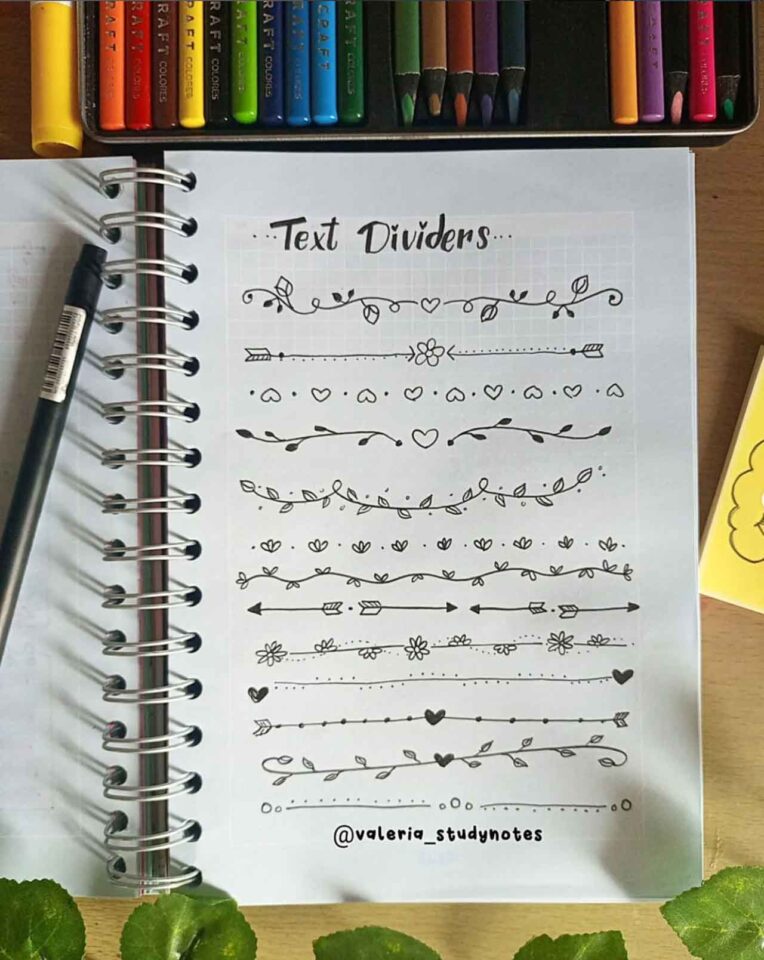 RAFT
RAFT COLORES
RAFT COLORES
RAFT COLORES
RAFT COLORES
RAFT COLORES
RAFT COLORES
RAFT COLORES
···Text Dividers···
@valeria_studynotes